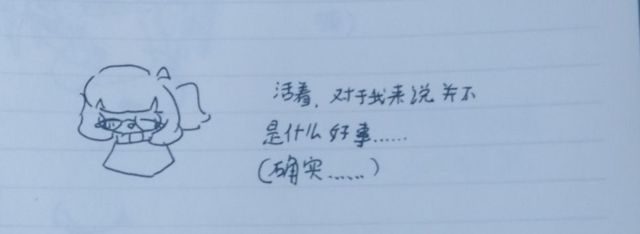 活着，对于我来说并不
是什么好事……
(确实……)